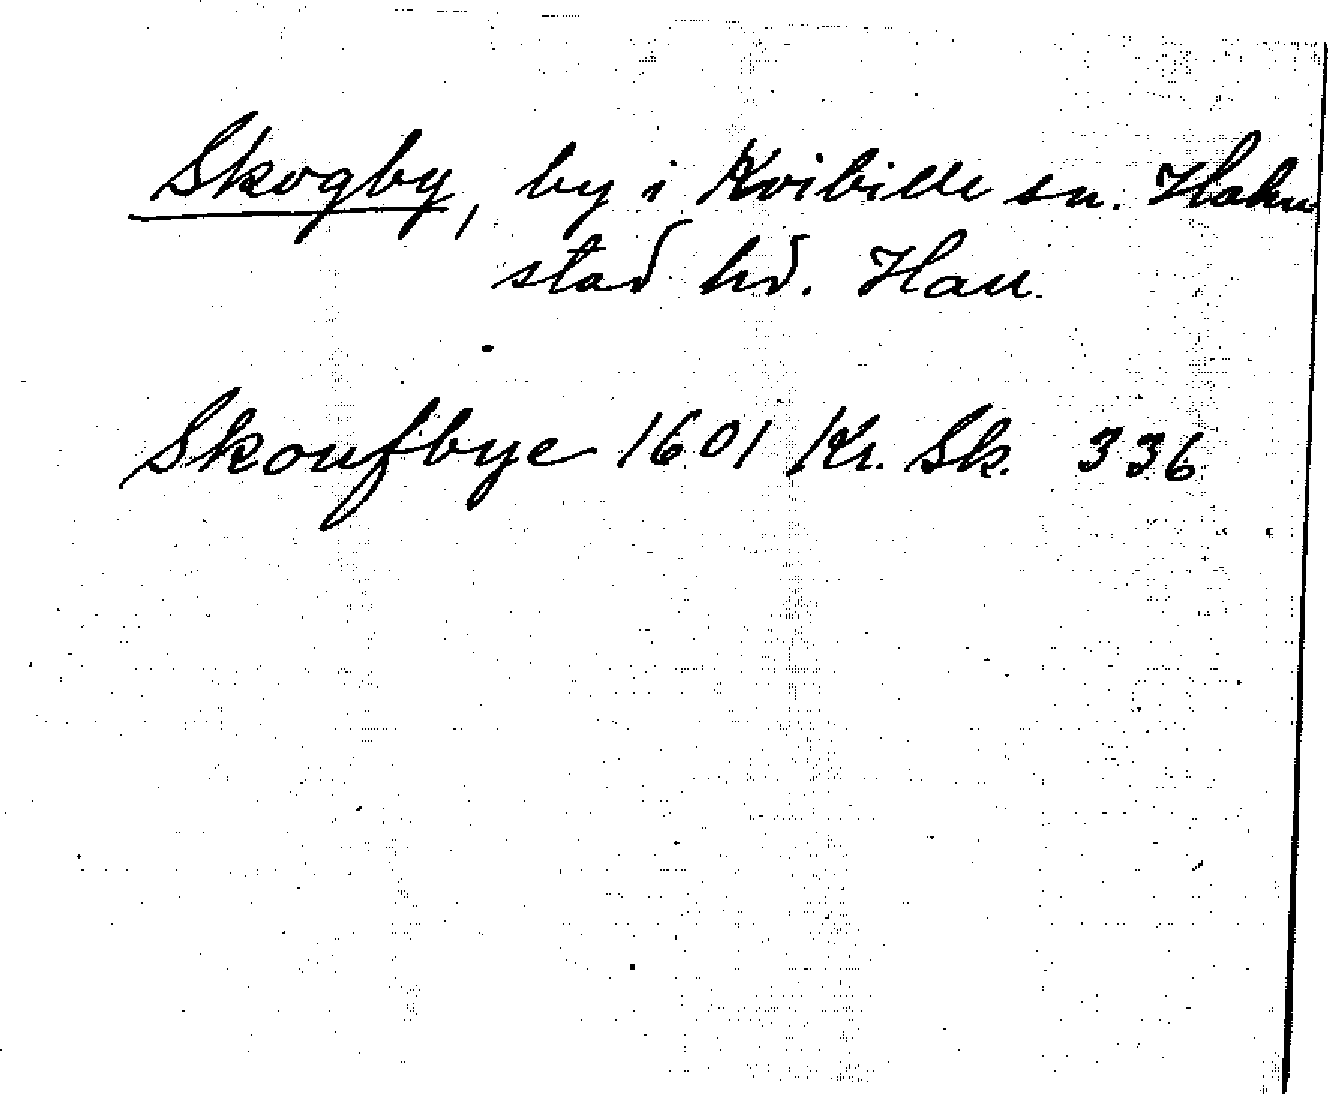 Skogby, by i Kvibille sn. Halm
stad hd. Hall.
Skoufbye 1601 Kr. Sk. 336